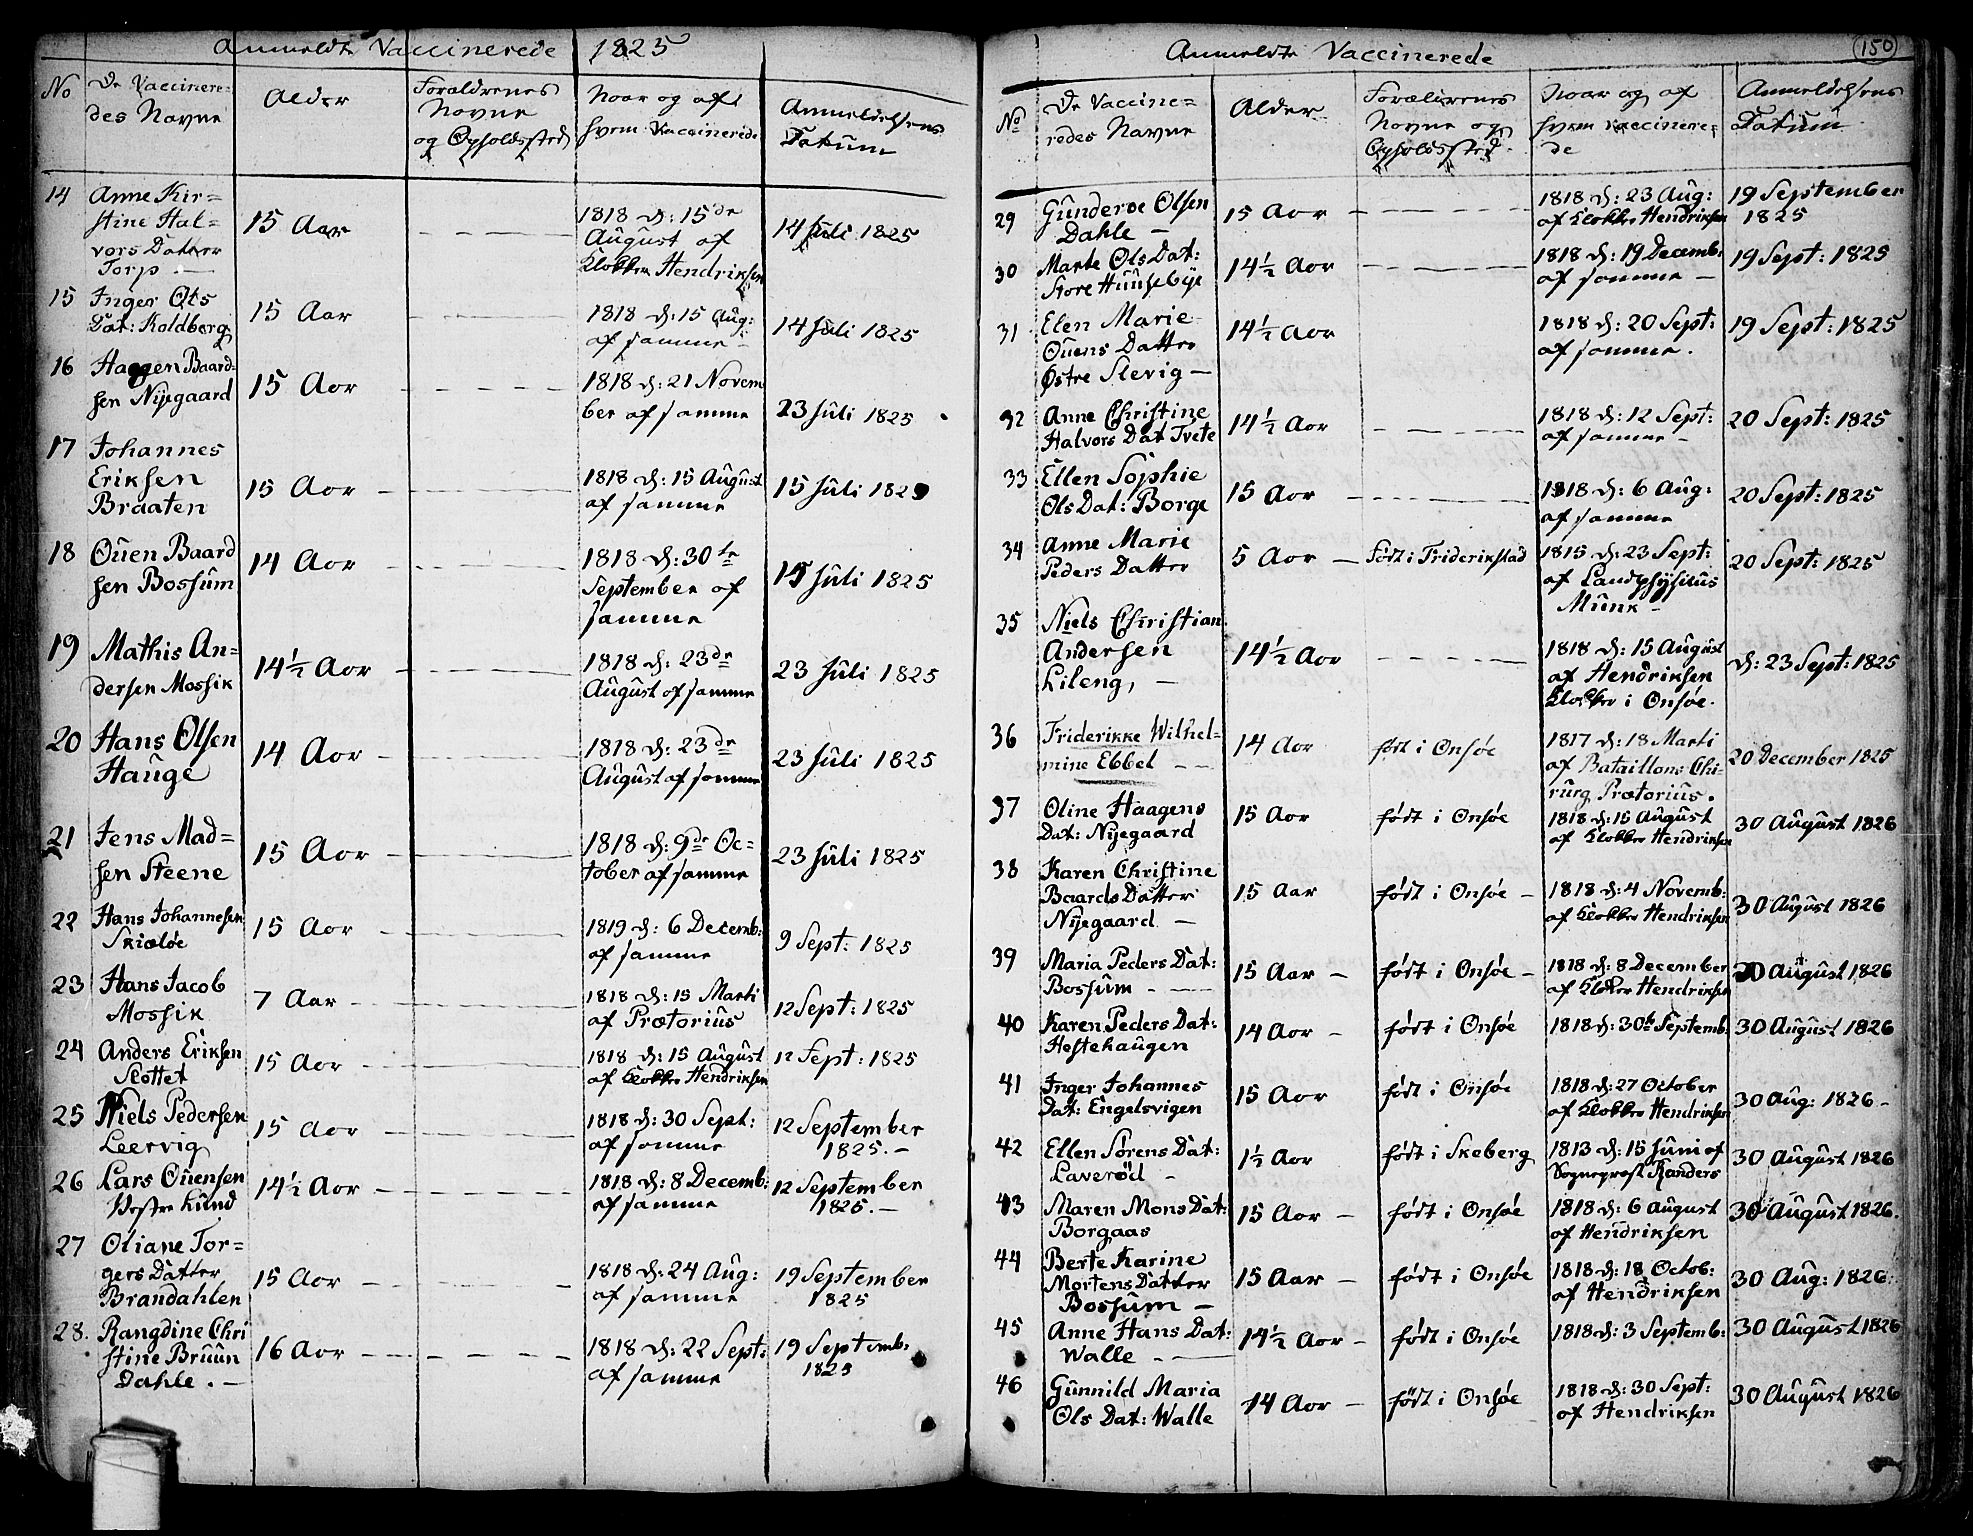 Anmeldte Vaccinerede 1825
No
De Vaccinere=
des Navne
Alder
Forældrenes
Navne
og Opholdssted
Naar og af
hvem Vaccinerede
Anmeldelsens
Datum
14 Anne Kir=
stine Hal=
vors Datter
Torp
15 Aar
1818 d: 15de
August af
Klokker Hendriksen
14 Juli 1825
15 Inger Ols
Dat: Koldberg
15 Aar
1818 d: 15 Aug:
af samme
14 Juli 1825
16 Haagen Baard=
sen Nyegaard
15 Aar
1818 d: 21 Novem
ber af samme
23 Juli 1825
17 Johannes
Eriksen
Braaten
15 Aar
1818 d: 15 August
af samme
15 Juli 1825
18 Ouen Baard
sen Bossum
14 Aar
1818 d: 30te
September af
samme
15 Juli 1825
19 Mathis An=
dersen Mossik
14½ Aar
1818 d: 23de
August af samme
23 Juli 1825
20 Hans Olsen
Hauge
14 Aar
1818 d: 23de
August af samme
23 Juli 1825
21 Jens Mad=
sen Steene
15 Aar
1818 d: 9de Oc=
tober af samme
23 Juli 1825
22 Hans Johannesen
Skiæløe
15 Aar
1819 d: 6 Decemb:
af samme
9 Sept: 1825
23 Hans Jacob
Mossik
7 Aar
1818 d: 15 Marti
af Prætorius
12 Sept: 1825
24 Anders Eriksen
Slottet
15 Aar
1818 d: 15 August
af Klokker Hendriksen
12 Sept: 1825
25 Niels Pedersen
Leervig
15 Aar
1818 d: 30 Sept:
af samme
12 September
1825.
26 Lars Ouensen
Vestre Kiind
14½ Aar
1818 d: 8 Decemb:
af samme
12 September
1825.
27 Oliane Tor=
gers Datter
Brandahlen
15 Aar
1818 d: 24 Aug:
af samme
19 September
1825
28. Rangdine Chri
stine Bruun
Dahle.
16 Aar
1818 d: 22 Sept:
af samme
19 Septemb:
1825
Anmeldte Vaccinerede
150
No
De Vaccine=
redes Navne
Alder
Forældrenes
Navne og
Opholdssted
Naar og af
hvem vaccinere=
de
Anmeldelsens
Datum
29 Gunderoe Olsen
Dahle
15 Aar
1818 d: 23 Aug:
af Klokker Hendriksen
19 September
1825
30 Marte Ols Dat:
Store Huusebye
14½ Aar
1818 d: 19 Decemb:
af samme
19 Sept: 1825
31. Elen Marie
Ouens Datter
Østre Slevig
14½ Aar
1818 d: 20 Sept:
af samme.
19 Sept: 1825
32 Anne Christine
Halvors Dat Tvete
14½ Aar
1818 d: 12 Sept:
af samme
20 Sept: 1825
33 Ellen Sophie
Ols Dat: Borge
15 Aar
1818 d: 6 Aug:
af samme
20 Sept: 1825
34 Anne Marie
Peders Datter
5 Aar
født i Friderikstad
1815 d: 23 Sept:
af Landphysicus
Munk
20 Sept: 1825
35 Niels Christian
Andersen
Lileng,
14½ Aar
1818 d: 15 August
af Hendriksen
Klokker i Onsøe.
d: 23 Sept: 1825
36 Friderikke Wilhel=
mine Ebbel
14 Aar
født i Onsøe
1817 d: 18 Marti
af Bataillons Chi=
rurg Prætorius.
20 December 1825
37 Oline Haagens
Dat: Nyegaard
15 Aar
født i Onsøe
1818 d: 15 August
af Klokker Hendriksen
30 August 1826
38 Karen Christine
Baards Datter
Nyegaard
15 Aar
født i Onsøe
1818 d: 4 Novemb:
af Klokker Hendriksen
30 August 1826
39 Maria Peders Dat:
Bossum
15 Aar
født i Onsøe
1818 d: 8 December
af Klokker Hendriksen
30 August 1826
40 Karen Peders Dat:
Hestehaugen
14 Aar
født i Onsøe
1818 d: 30te Septemb.
30 August 1826
41 Inger Johannes
Dat: Engelsvigen
15 Aar
født i Onsøe
1818 d: 27 October
af Klokker Hendriksen
30 Aug: 1826
42 Ellen Sørens Dat:
Laverød
1½ Aar
født i Skeberg
1813 d: 15 Juni af
Sogneprest Randers
30 August 1826
43 Maren Mons Dat:
Borgaas
15 Aar
født i Onsøe
1818 d: 6 August
af Hendriksen
30 August 1826.
44 Berte Karine
Mortens Datter
Bossum
15 Aar
født i Onsøe
1818 d: 18 Octob:
af Hendriksen
30 Aug: 1826:
45 Anne Hans Dat:
Walle
14½ Aar
født i Onsøe
1818 d: 3 Septemb:
30 August 1826
46 Gunnild Maria
Ols Dat: Walle
14 Aar
født i Onsøe
1818 d: 30 Sept:
af Hendriksen
30 August 1826